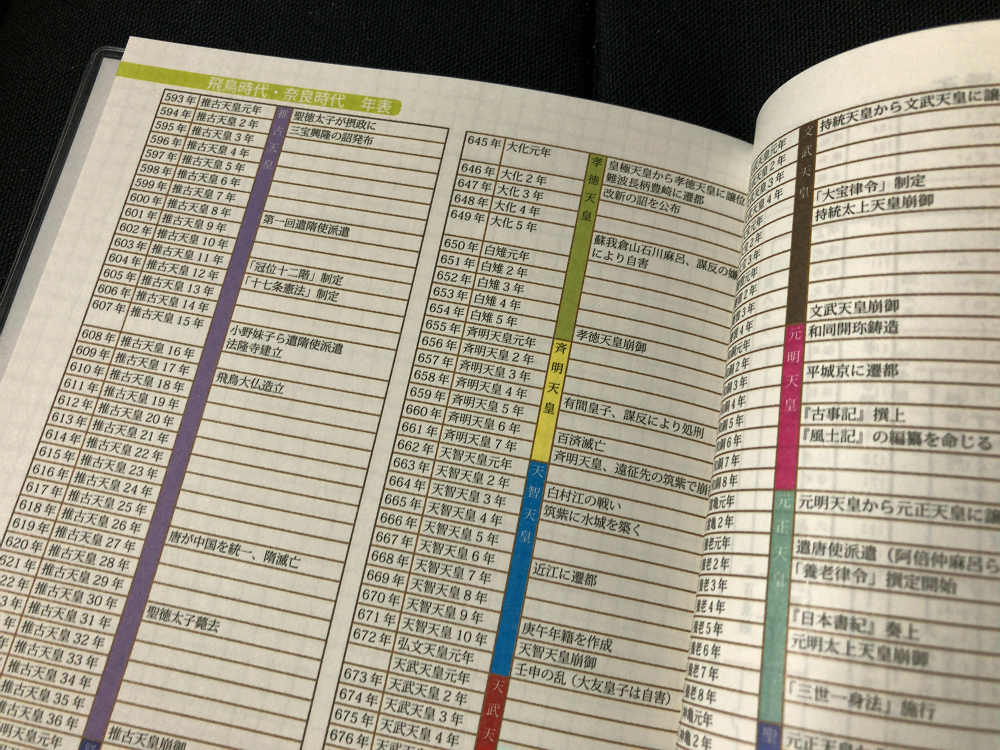 飛鳥時代・奈良時代 年表
593年 推古天皇元年 聖徳太子が摂政に
594年 推古天皇2年 三宝興隆の詔発布
595年 推古天皇3年
596年 推古天皇4年
597年 推古天皇5年
598年 推古天皇6年
599年 推古天皇7年
600年 推古天皇8年 第一回遣隋使派遣
601年 推古天皇9年
602年 推古天皇10年
603年 推古天皇11年 「冠位十二階」制定
604年 推古天皇12年 「十七条憲法」制定
605年 推古天皇13年
606年 推古天皇14年
607年 推古天皇15年 小野妹子ら遣隋使派遣
法隆寺建立
608年 推古天皇16年
609年 推古天皇17年 飛鳥大仏造立
610年 推古天皇18年
611年 推古天皇19年
612年 推古天皇20年
613年 推古天皇21年
614年 推古天皇22年
615年 推古天皇23年
616年 推古天皇24年
617年 推古天皇25年
618年 推古天皇26年 唐が中国を統一、隋滅亡
619年 推古天皇27年
620年 推古天皇28年
621年 推古天皇29年
22年 推古天皇30年 聖徳太子薨去
3年 推古天皇31年
年 推古天皇32年
推古天皇33年
推古天皇34年
推古天皇35年
古天皇36年 推古天皇崩御
明天皇元年
推古天皇
645年 大化元年 皇極天皇から孝徳天皇に譲位
難波長柄豊崎に遷都
646年 大化2年 改新の詔を公布
647年 大化3年
648年 大化4年
649年 大化5年 蘇我倉山石川麻呂、謀反の嫌
により自害
650年 白雉元年
651年 白雉2年
652年 白雉3年
653年 白雉4年
654年 白雉5年 孝徳天皇崩御
655年 斉明天皇元年
656年 斉明天皇2年
657年 斉明天皇3年
658年 斉明天皇4年 有間皇子、謀反により処刑
659年 斉明天皇5年
660年 斉明天皇6年 百済滅亡
661年 斉明天皇7年 斉明天皇、遠征先の筑紫で崩
662年 天智天皇元年
663年 天智天皇2年 白村江の戦い
664年 天智天皇3年 筑紫に水城を築く
665年 天智天皇4年
666年 天智天皇5年
667年 天智天皇6年 近江に遷都
668年 天智天皇7年
669年 天智天皇8年
670年 天智天皇9年 庚午年籍を作成
671年 天智天皇10年 天智天皇崩御
672年 弘文天皇元年 壬申の乱（大友皇子は自害）
天武天皇元年
673年 天武天皇2年
674年 天武天皇3年
675年 天武天皇4年
676年
孝徳天皇
斉明天皇
天智天皇
天武天
持統天皇から文武天皇に譲
「大宝律令」制定
持統太上天皇崩御
文武天皇崩御
和同開珎鋳造
平城京に遷都
『古事記』撰上
『風土記』の編纂を命じる
元明天皇から元正天皇に譲
遣唐使派遣（阿倍仲麻呂ら
「養老律令」撰定開始
『日本書紀』奏上
元明太上天皇崩御
「三世一身法」施行
元正天
文武天皇
元明天皇
元正天皇
聖